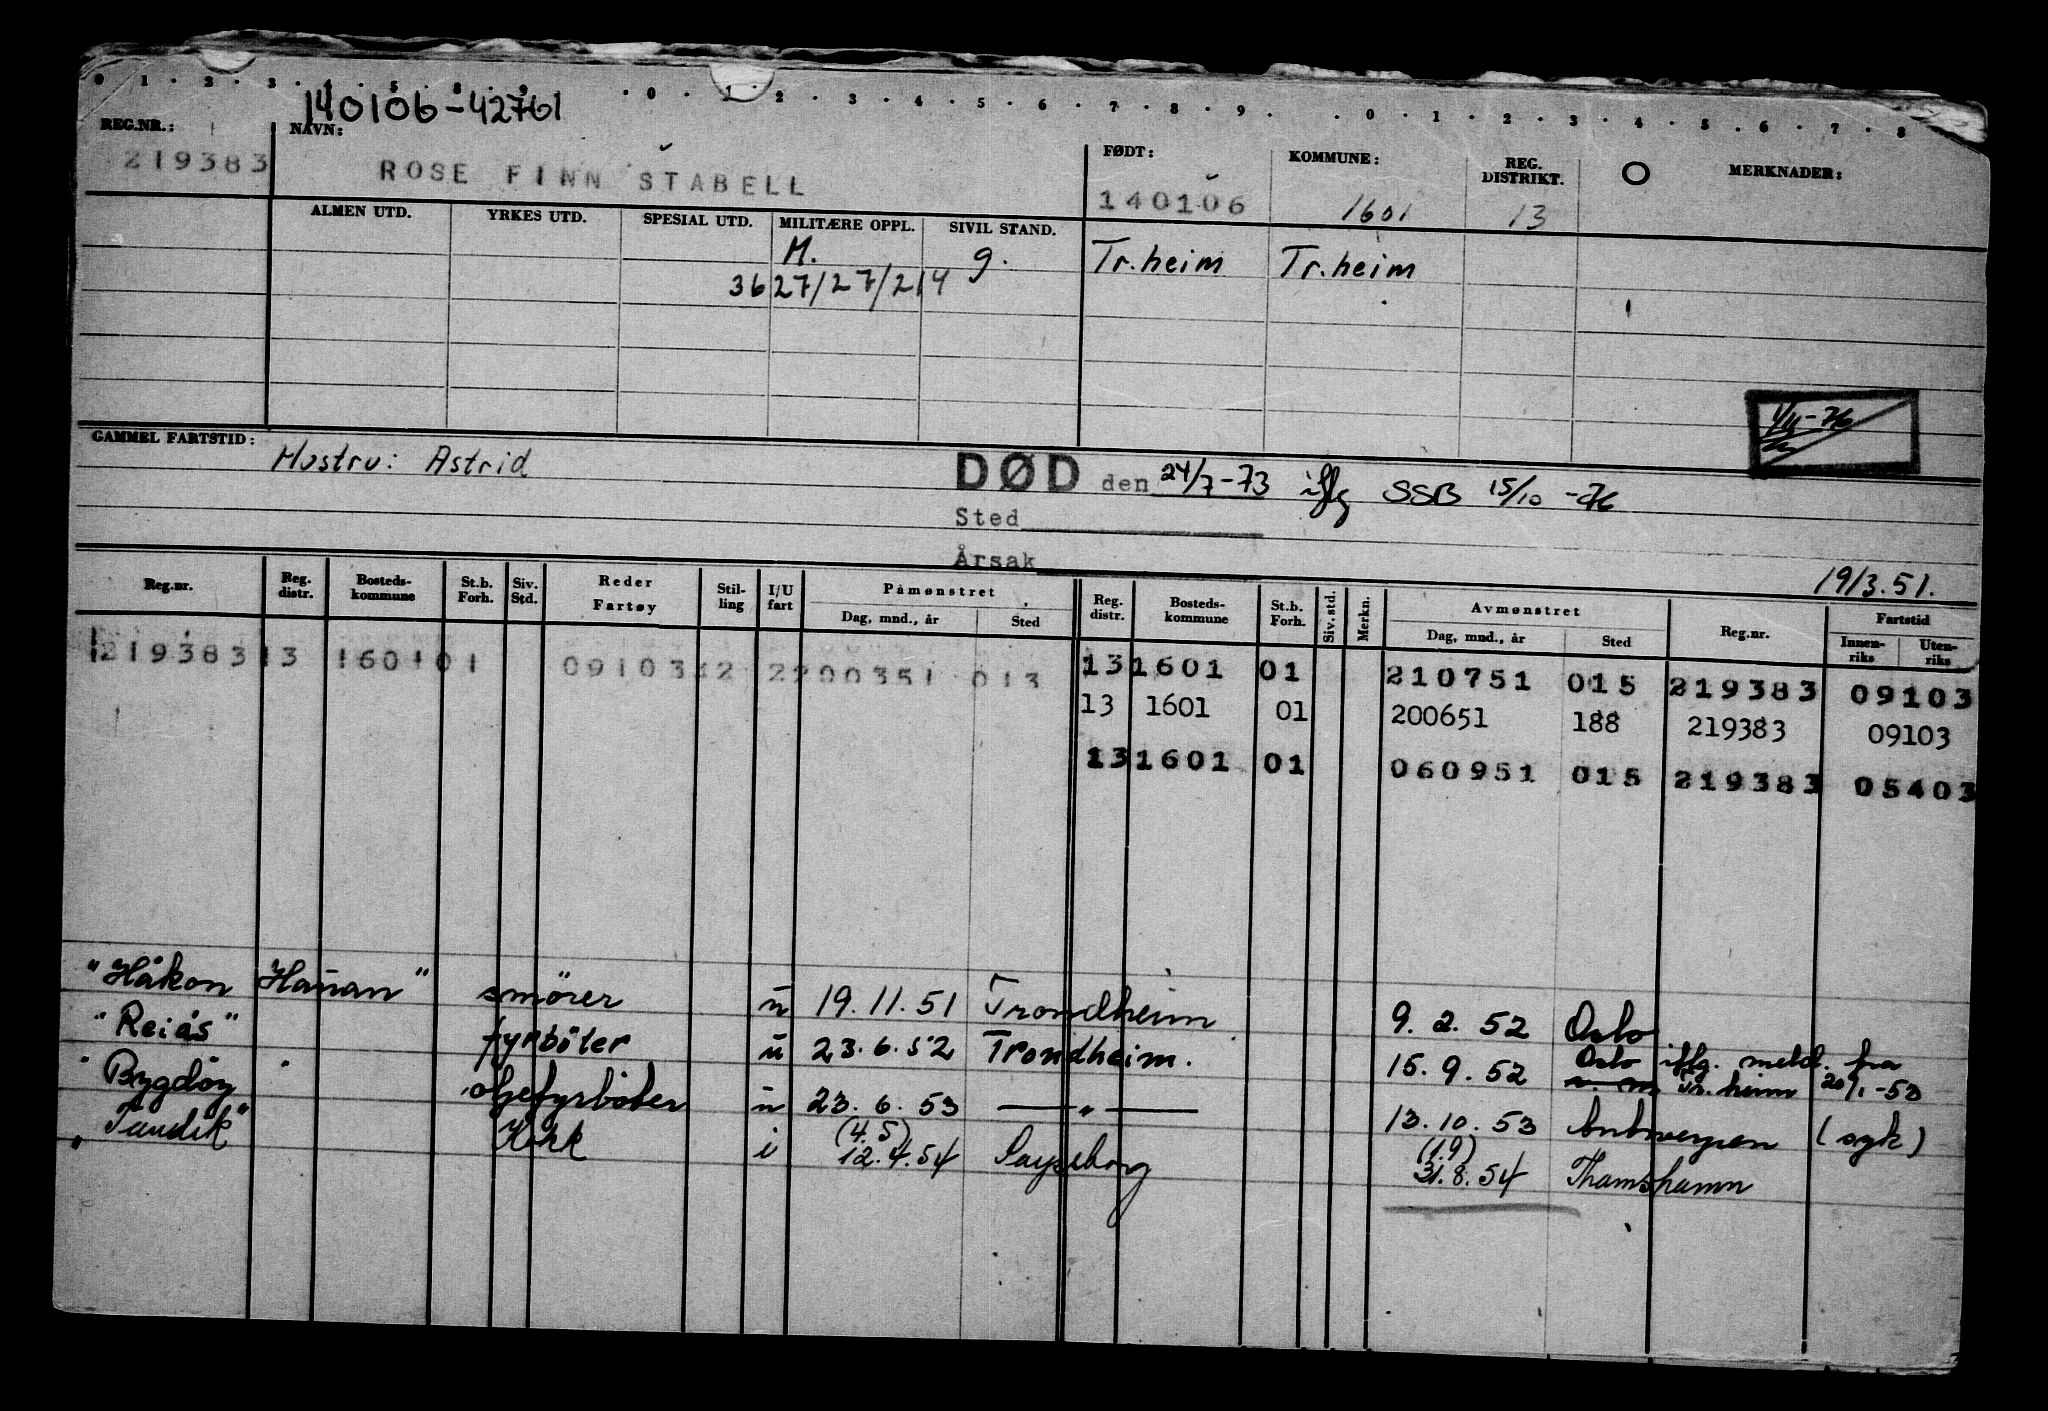 0 . 1 . 2 . 3 . 4 . 5 . 8 . 9 . 0 . 1 . 2 . 3 . 4 . 5 . 6 . 7 . 8 . 9 . . 0 . 1 . 2 . 3 . 4 . 5 . 6 . 7 . 8
140106-42761
REG.NR.: NAVN: FØDT: KOMMUNE: REG. DISTRIKT. O MERKNADER:
219383 ROSE FINN STABELL 140106 1601 13
ALMEN UTD. YRKES UTD. SPESIAL UTD. MILITÆRE OPPL. SIVIL STAND.
M. g. Tr.heim Tr.heim
3627/27/214
GAMMEL FARTSTID:
Hustru: Astrid
DØD den 24/7-73 iflg SSB 15/10 -76
Sted
Årsak
19/3.51.
Reg.nr. Reg. distr. Bosteds-kommune St.b. Forh. Siv. Std. Reder Fartøy Stil-ling I/U fart Påmønstret Reg. distr. Bosteds-kommune St.b. Forh. Siv. std. Merkn. Avmønstret Reg.nr. Fartstid
Dag, mnd., år Sted Dag, mnd., år Sted Innen-riks Uten-riks
219383 13 1601 01 0910342 2200351 013 13 1601 01 210751 015 219383 09103
13 1601 01 200651 188 219383 09103
13 1601 01 060951 015 219383 05403
"Håkon Hanan" smörer u 19.11.51 Trondheim 9.2.52 Oslo
"Reiås" fyrböter u 23.6.52 Trondheim. 15.9.52 Oslo iflg. meld. fra Tr.heim 20/1-53
" Bygdöy oljefyrböter u 23.6.53 — " — 13.10.53 Antwerpen (syk)
(4.5) (1.9)
Kokk i 12.4.54 Sarpsborg 31.8.54 Thamshamn